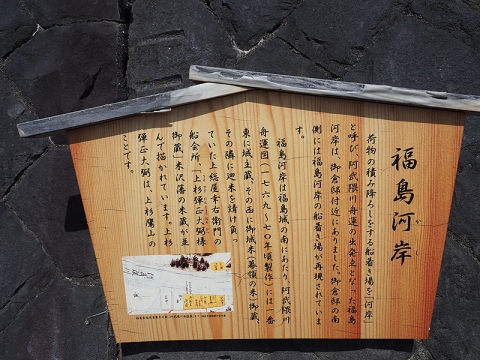 福島河岸
荷物の積み降ろしをする船着き場を「河岸」
と呼び、阿武隈川舟運の出発点となった福島
河岸は、御倉邸付近にありました。御倉邸の南
側には福島河岸の船着き場が再現されていま
す。
福島河岸は福島城の南にあたり、阿武隈川
舟運図(一七六九〜七〇年頃製作)には一番
東に城主蔵、その西に御城米(幕領の米)御蔵、
その隣に廻米を請け負っ
ていた上総屋幸右衛門の
船会所、「上杉弾正大弼様
御蔵」米沢藩の米蔵が並
んで描かれています。上杉
弾正大弼は、上杉鷹山の
ことです。